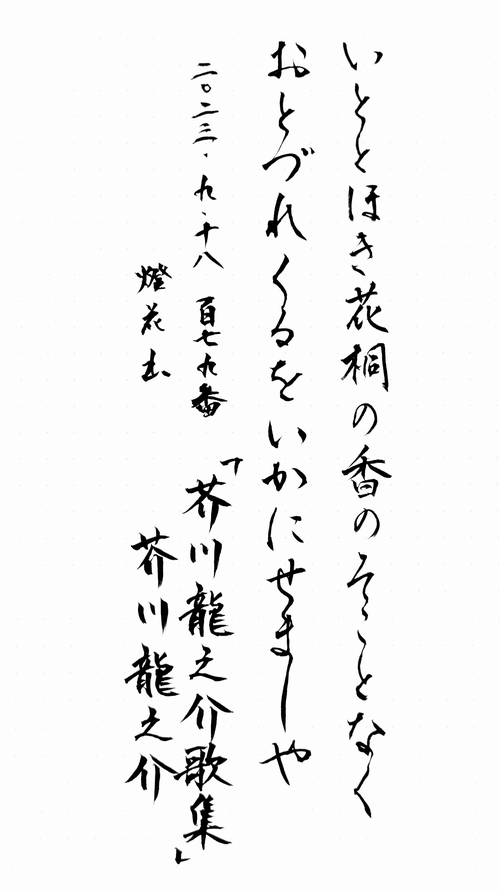 いととほき花桐の香のそことなく
おとづれくるをいかにせましや
二〇二三・九・十八　百七九番　「芥川龍之介歌集」
燈花出　芥川龍之介